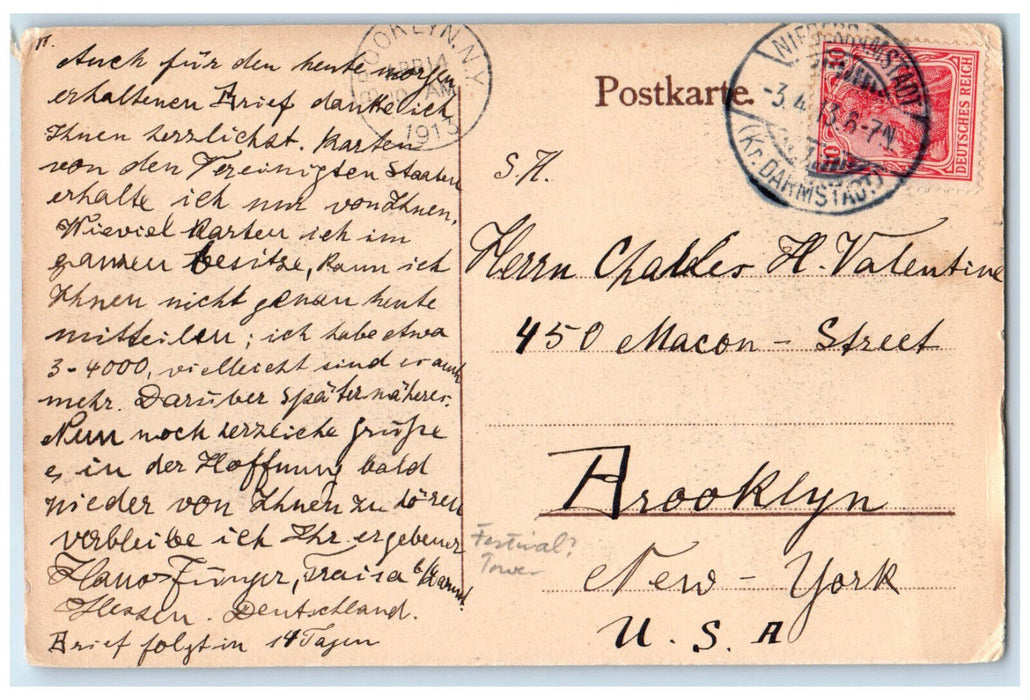 Auch für den heute morgen
erhaltenen Brief danke ich
Ihnen herzlichst. Karten
von den Vereinigten Staaten
erhalte ich nur von Ihnen.
Wieviel Karten ich im
ganzen besitze, kann ich
Ihnen nicht genau heute
mitteilen; ich habe etwa
3-4000, vielleicht sind es auch
mehr. Darüber später näheres.
Nun noch herzliche Grüße
in der Hoffnung bald
wieder von Ihnen zu hören
verbleibe ich Ihr ergebener
Hans Jünger, Traisa b/Darmst.
Hessen. Deutschland.
Brief folgt in 14 Tagen
BROOKLYN, N.Y.
APR 14
AM
1913
Postkarte.
NIEDER-RAMSTADT
-3.4.13.6-7N.
(Kr. DARMSTADT)
DEUTSCHES REICH
10
S. H.
Herrn Charles H. Valentine
450 Macon - Street
Brooklyn
New - York
U. S. A
Festival?
Tower